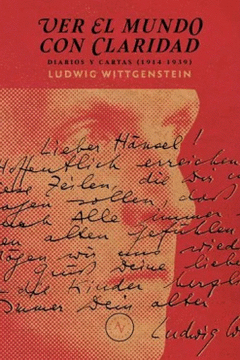 VER EL MUNDO
CON CLARIDAD
DIARIOS Y CARTAS (1914-1939)
LUDWIG WITTGENSTEIN
Lieber Hänsel!
Hoffentlich erreichen
diese Zeilen, die Dir
sagen sollen, daß
Alle immer
alten Gefühlen
wir uns wieder
Gruß Deine liebe
die Kinder
Immer Dein alter
Ludwig W